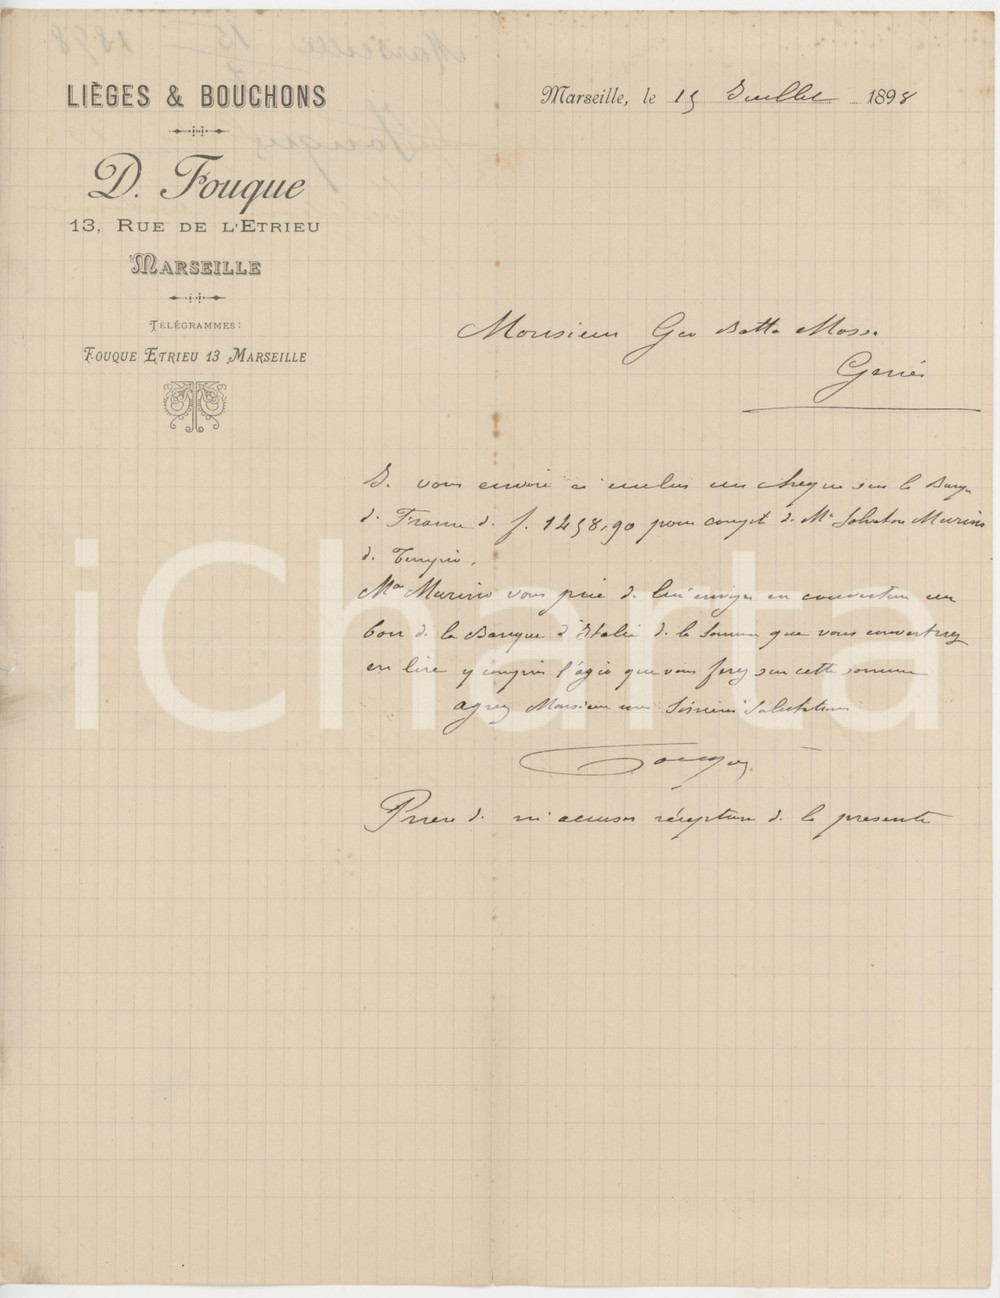 LIÈGES & BOUCHONS
D. Fouque
13, RUE DE L'ETRIEU
MARSEILLE
TÉLÉGRAMMES:
FOUQUE ETRIEU 13 MARSEILLE
Marseille, le 15 Juillet 1898
Monsieur Gio Batta
Gênes
Je vous envoie ci inclus un chèque sur la Banque
de France de f. 1458,90 pour compte de Mr Salvatore Murino
de Tempio.
Mr Murino vous prie de lui envoyer en couverture un
bon de la Banque d'Italie de la somme que vous convertirez
en lire y compris l'agio que vous ferez sur cette somme
agreez Monsieur mes Sincères Salutations
Fouque
Priere de m'accuser réception de la presente
Marseille 15 1898
Fouque
iCharta